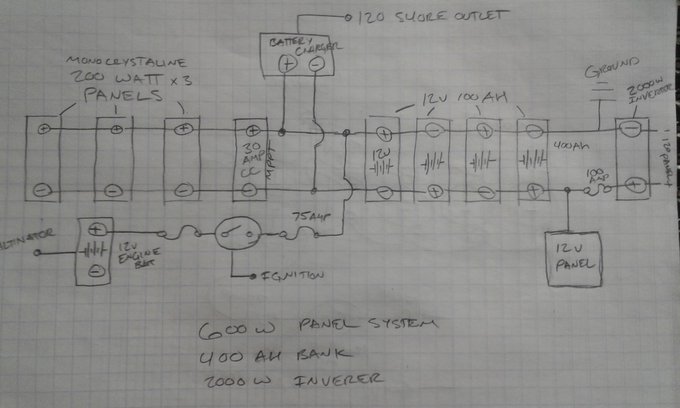 120 SHORE OUTLET
BATTERY
CHARGER
+ −
MONOCRYSTALINE
200 WATT x 3
PANELS
12V 100 AH
GROUND
2000W
INVERTER
+ + + + + − − − −
30
AMP
CC
MPPT
12V
400AH
− − − − − + + + +
100
AMP
75AMP
ALTINATOR
+
−
12V
ENGINE
BAT
IGNITION
12V
PANEL
600W PANEL SYSTEM
400 AH BANK
2000W INVERER